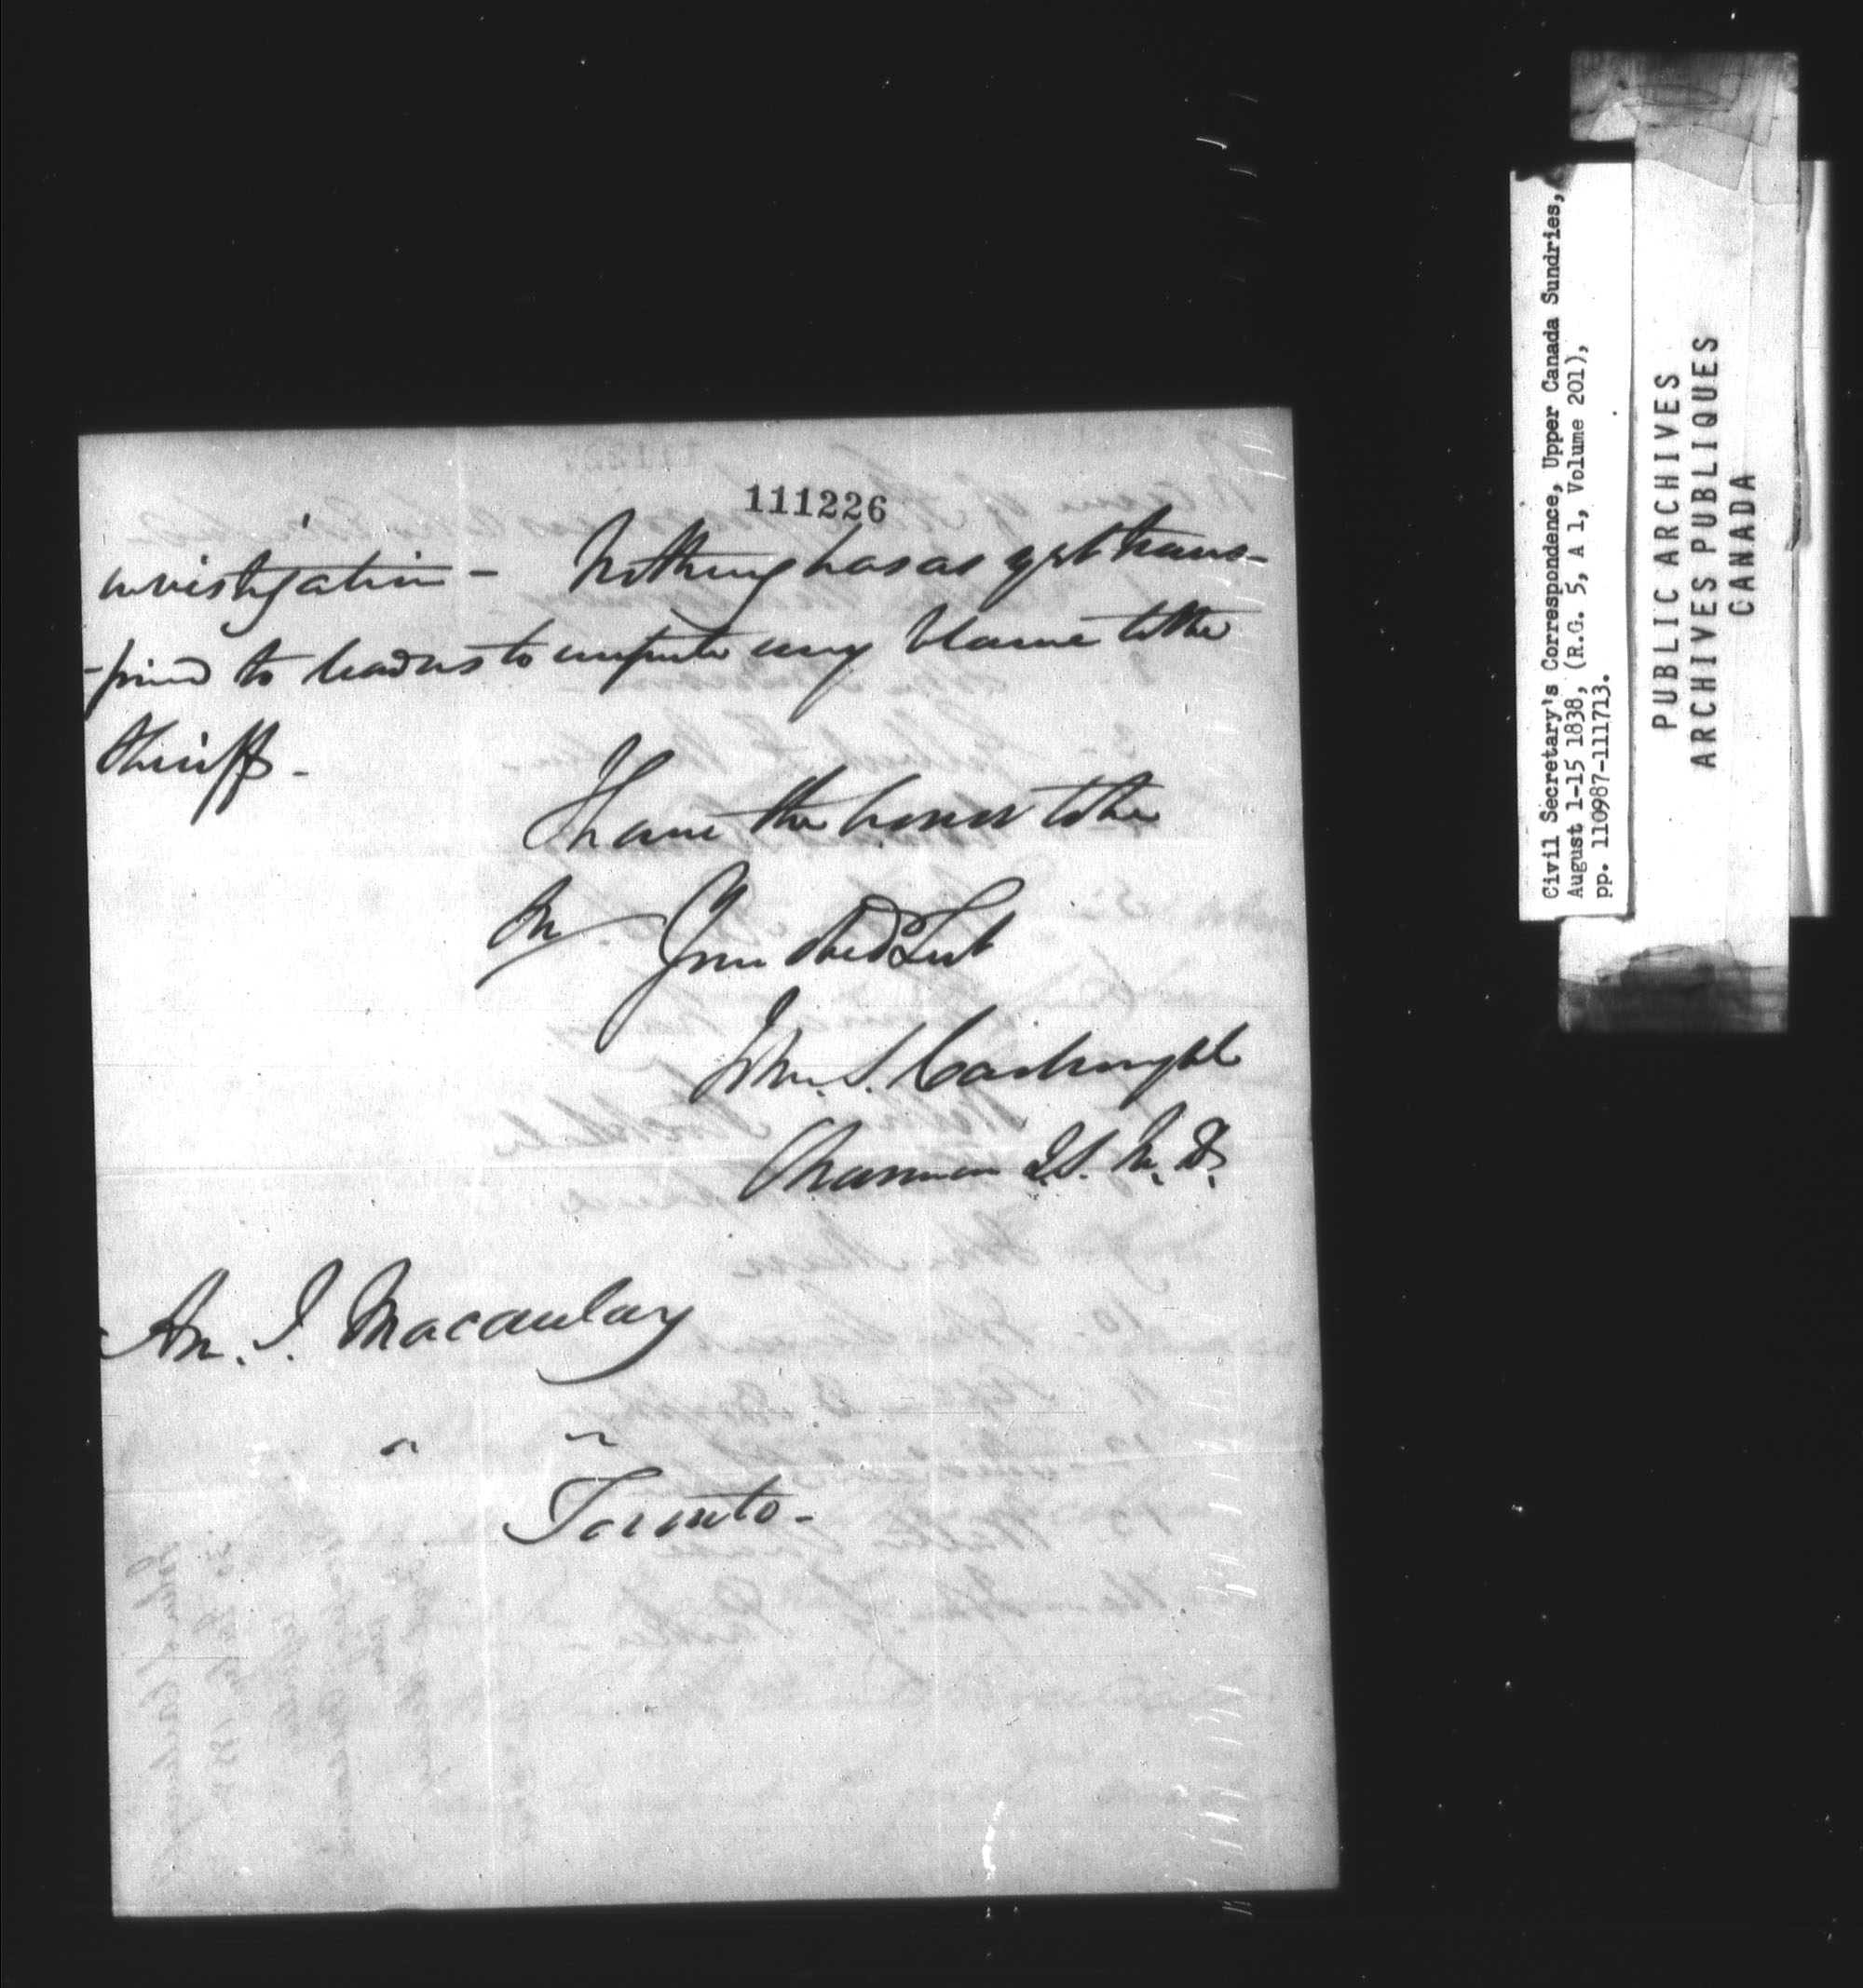 111226
investigation - Nothing has as yet trans-
-pired to lead us to impute any blame to the
Sheriff -
I have the honor to be
Sir
Your Obed Svt
John S. Cartwright
Chairman Q.S. M.D.
Hon. J. Macaulay
Toronto -
Civil Secretary's Correspondence, Upper Canada Sundries,
August 1-15 1838, (R.G. 5, A 1, Volume 201),
pp. 110987-111713.
PUBLIC ARCHIVES
ARCHIVES PUBLIQUES
CANADA